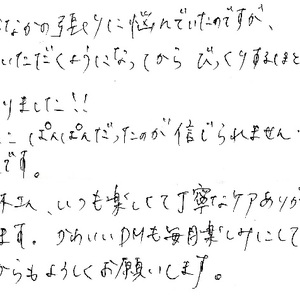 なかの張りに悩んでいたのですが、
いただくようになってから びっくりするほど
りました!!
こ ぱんぱんだったのが信じられません
です。
さん、いつも楽しくて丁寧なケアありが
ます。かわいいDMも毎月楽しみにして
からもよろしくお願いします。